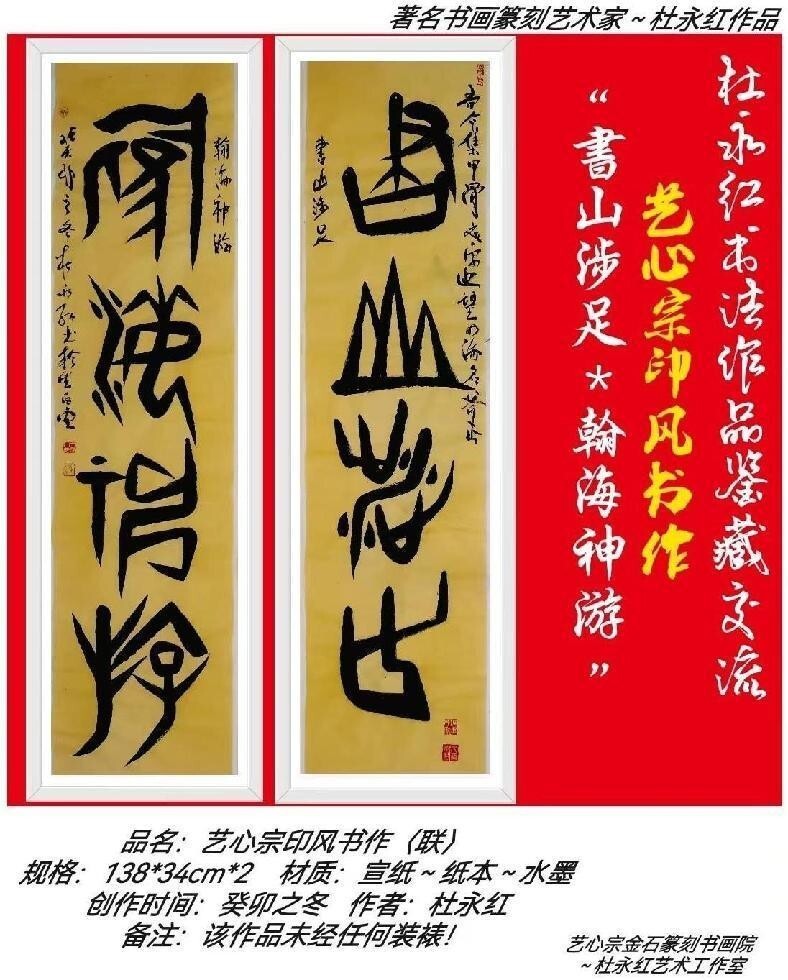 著名书画篆刻艺术家~杜永红作品
杜永红书法作品鉴藏交流
艺心宗印风书作
“書山涉足*翰海神游”
書山涉足
書山涉足
翰海神游
翰海神游
品名：艺心宗印风书作（联）
规格：138*34cm*2 材质：宣纸~纸本~水墨
创作时间：癸卯之冬 作者：杜永红
备注：该作品未经任何装裱！
艺心宗金石篆刻书画院
~杜永红艺术工作室